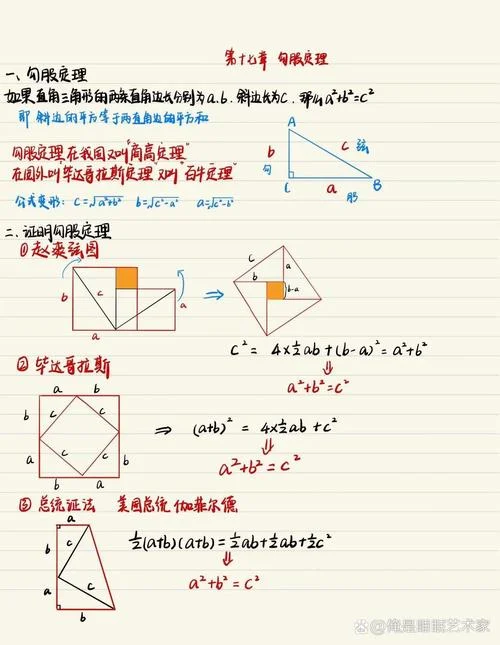 第十七章 勾股定理
一、勾股定理
如果直角三角形的两条直角边长分别为a.b.斜边长为c.那么a²+b²=c²
即 斜边的平方等于两直角边的平方和
勾股定理在我国又叫"商高定理"
在国外叫"毕达哥拉斯定理"又叫"百牛定理"
公式变形: c=√a²+b² b=√c²-a² a=√c²-b²
A
b c 弦
勾
C a B
股
二、证明勾股定理
①赵爽弦图
b c a
a
⇒
c a
b b-a
c² = 4×½ab+(b-a)²=a²+b²
⇓
a²+b²=c²
②毕达哥拉斯
a b
b c c a
a c c b
b a
⇒ (a+b)² = 4×½ab+c²
⇓
a²+b²=c²
③总统证法 美国总统伽菲尔德
a
b c
a c
b
½(a+b)(a+b)=½ab+½ab+½c²
⇓
a²+b²=c²
知乎 @俺是睡眠艺术家